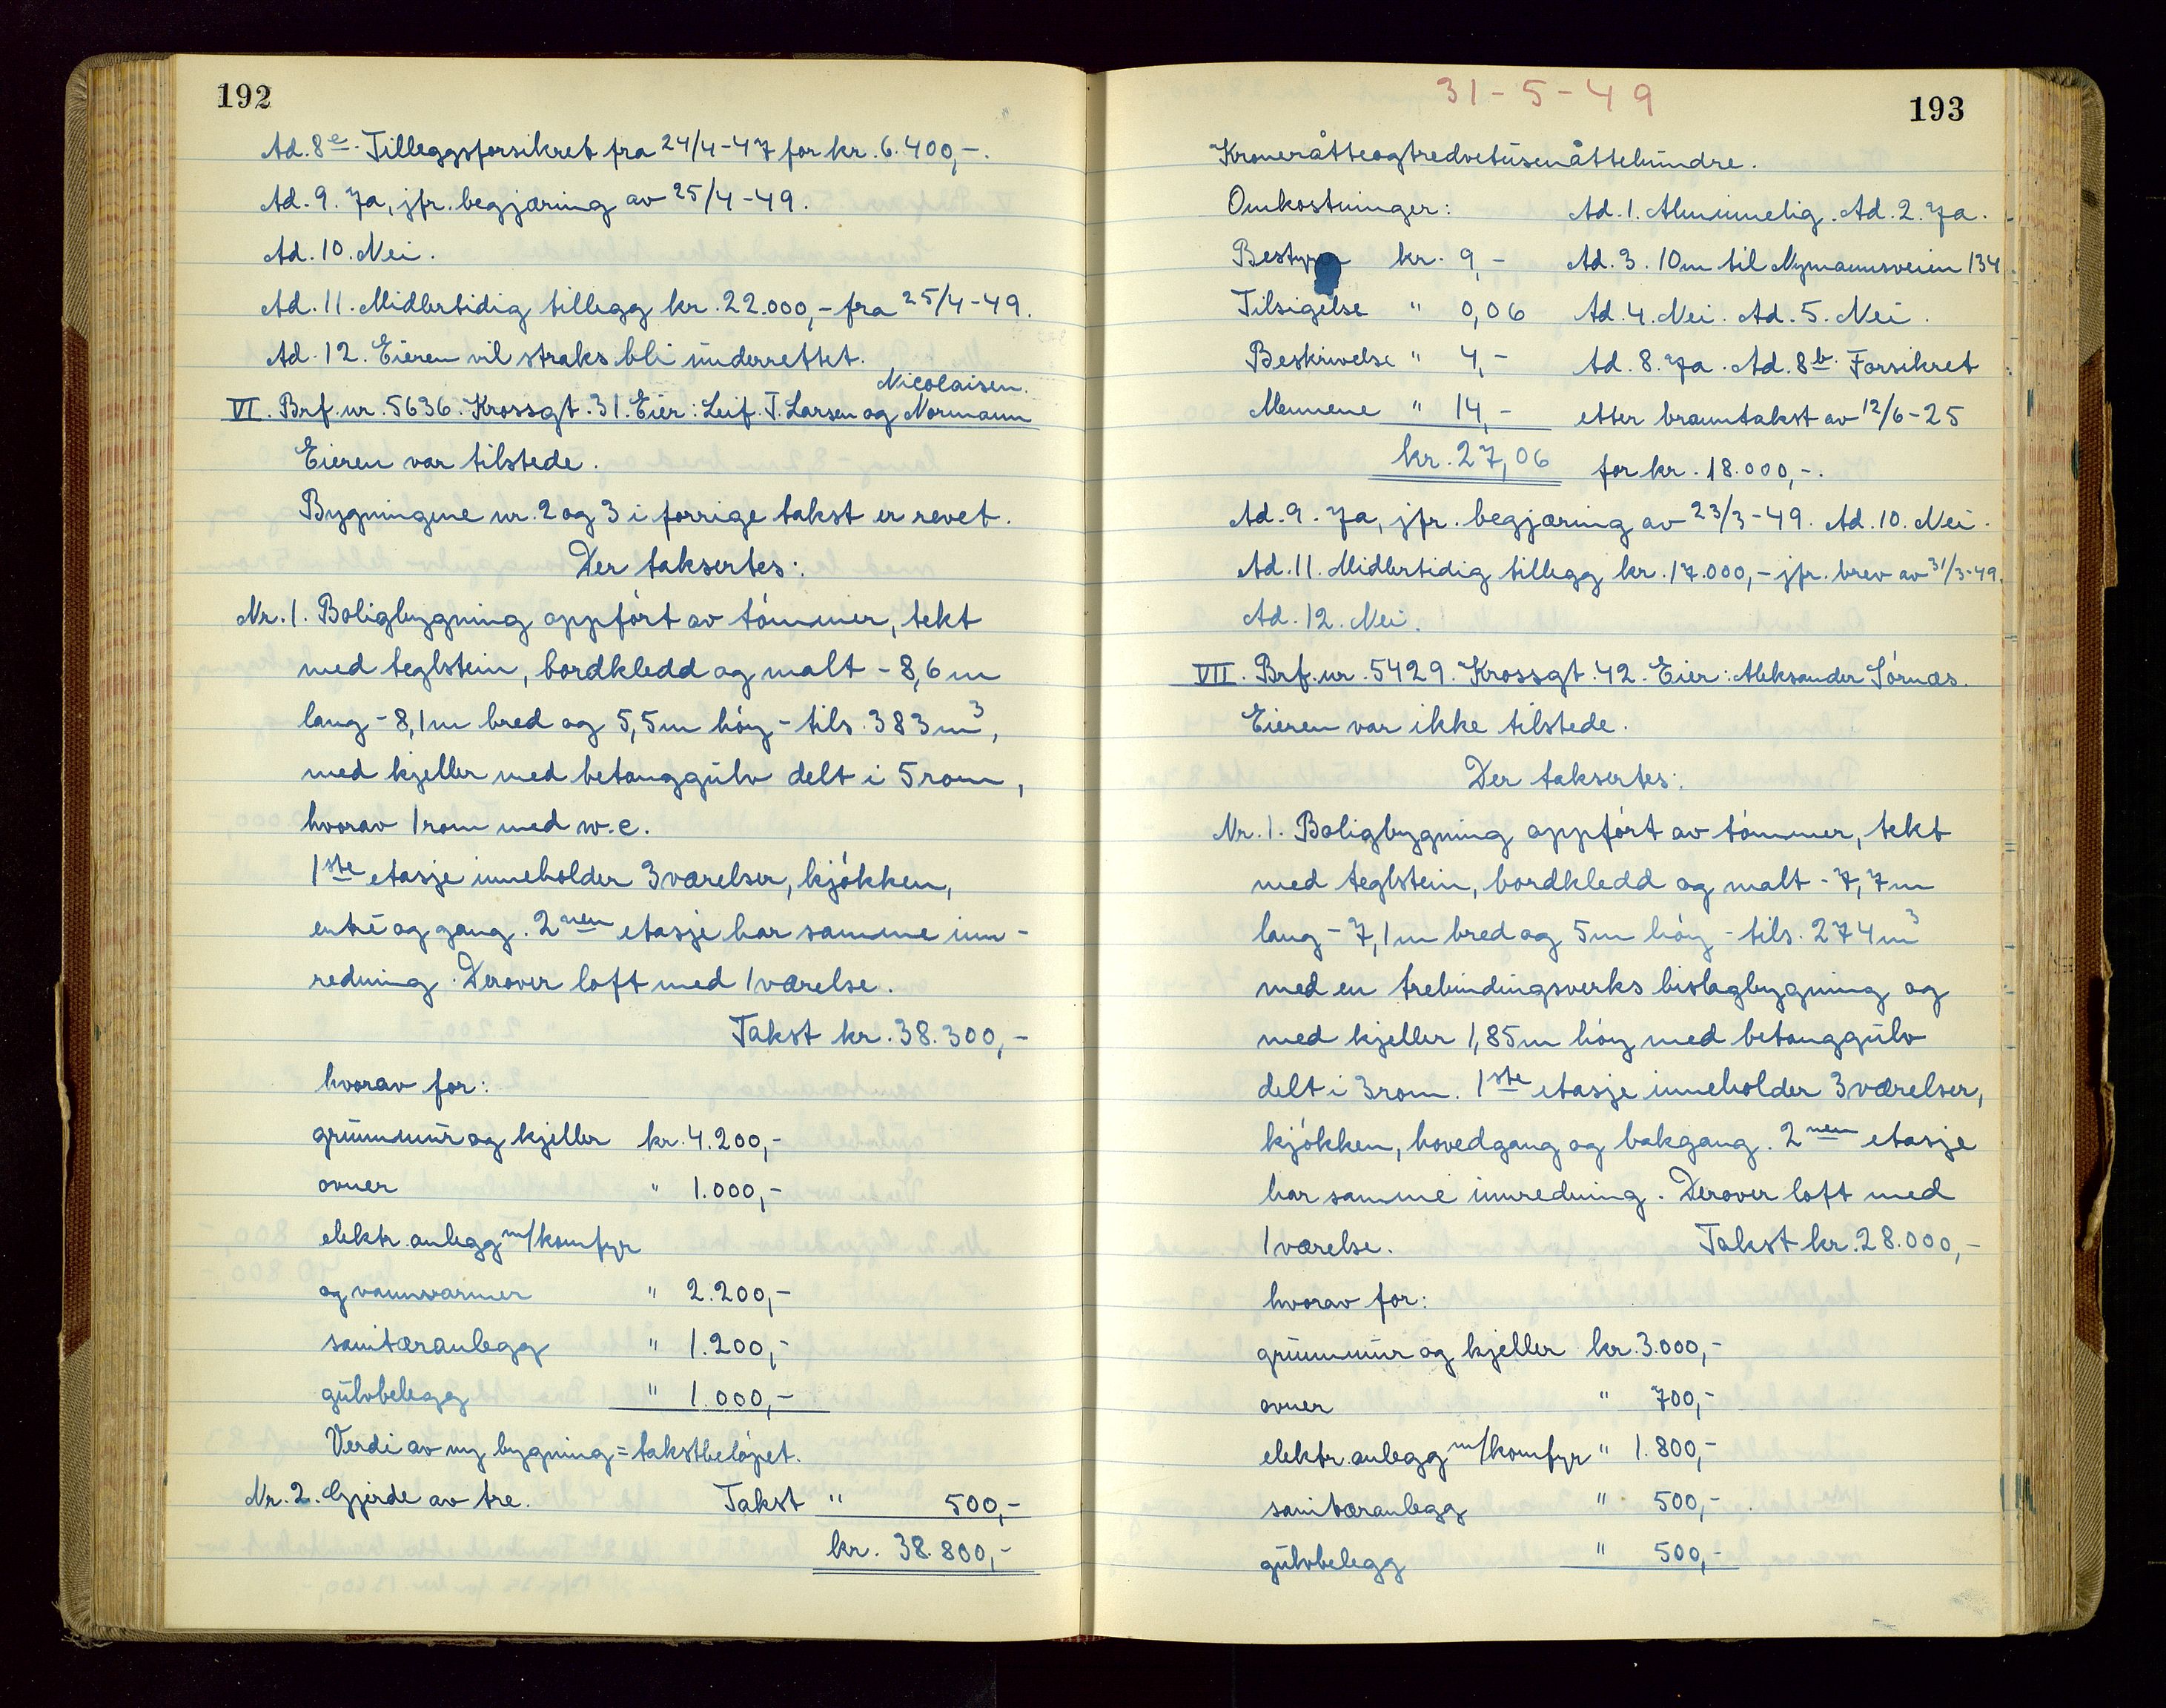 192
Ad. 8e. Tilleggsforsikret fra 24/4-47 for kr. 6.400,-.
Ad. 9. Ja, jfr. begjæring av 25/4-49.
Ad. 10. Nei.
Ad. 11. Midlertidig tillegg kr. 22.000,- fra 25/4-49.
Ad. 12. Eieren vil straks bli underrettet.
Nicolaisen.
VI. Brf. nr. 5636. Krossgt. 31. Eier: Leif T. Larsen og Normann
Eieren var tilstede.
Bygningene nr. 2 og 3 i forrige takst er revet.
Der taksertes:
Nr. 1. Boligbygning oppført av tømmer, tekt
med teglstein, bordkledd og malt - 8,6 m
lang - 8,1 m bred og 5,5 m høy - tils. 383 m3,
med kjeller med betonggulv delt i 5 rom,
hvorav 1 rom med w.c.
1ste etasje inneholder 3 værelser, kjøkken,
entré og gang. 2nen etasje har samme inn-
redning. Derover loft med 1 værelse.
Takst kr. 38.300,-
hvorav for:
grunnmur og kjeller kr. 4.200,-
ovner " 1.000,-
elektr. anlegg m/komfyr
og vannvarmer " 2.200,-
sanitæranlegg " 1.200,-
gulvbelegg " 1.000,-
Verdi av ny bygning = takstbeløpet.
Nr. 2. Gjerde av tre. Takst " 500,-
kr. 38.800,-
31-5-49
193
Kroneråtteogtredvetusenåttehundre.
Omkostninger: Ad. 1. Alminnelig. Ad. 2. Ja.
kr. 9,- Ad. 3. 10 m til Nymannsveien 134
Tilsigelse " 0,06 Ad. 4. Nei. Ad. 5. Nei.
Beskrivelse " 4,- Ad. 8. Ja. Ad. 8b. Forsikret
Mennene " 14,- etter branntakst av 12/6-25
kr. 27,06 for kr. 18.000,-.
Ad. 9. Ja, jfr. begjæring av 23/3-49. Ad. 10. Nei.
Ad. 11. Midlertidig tillegg kr. 17.000,- jfr. brev av 31/3-49.
Ad. 12. Nei.
VII. Brf. nr. 5429. Krossgt. 42. Eier: Aleksander Sørnæs.
Eieren var ikke tilstede.
Der taksertes:
Nr. 1. Boligbygning oppført av tømmer, tekt
med teglstein, bordkledd og malt - 7,7 m
lang - 7,1 m bred og 5 m høy - tils. 274 m3
med en trebindingsverks bislagbygning og
med kjeller 1,85 m høy med betonggulv
delt i 3 rom. 1ste etasje inneholder 3 værelser,
kjøkken, hovedgang og bakgang. 2nen etasje
har samme innredning. Derover loft med
1 værelse. Takst kr. 28.000,-
hvorav for:
grunnmur og kjeller kr. 3.000,-
ovner " 700,-
elektr. anlegg m/komfyr " 1.800,-
sanitæranlegg " 500,-
gulvbelegg " 500,-